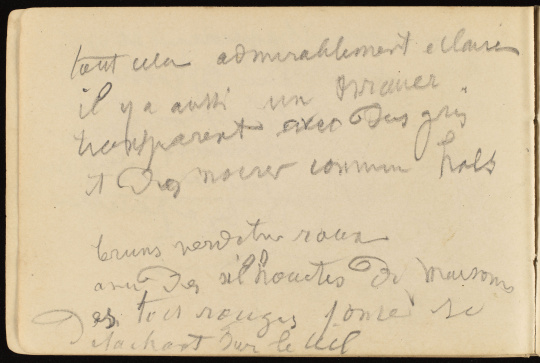 tout cela admirablement eclaire
il y a aussi un
transparent avec des gris
et des noirs comme Hals
bruns verdatre roux
avec des silhouettes de maisons
des toits rouges foncé se
detachant sur le ciel